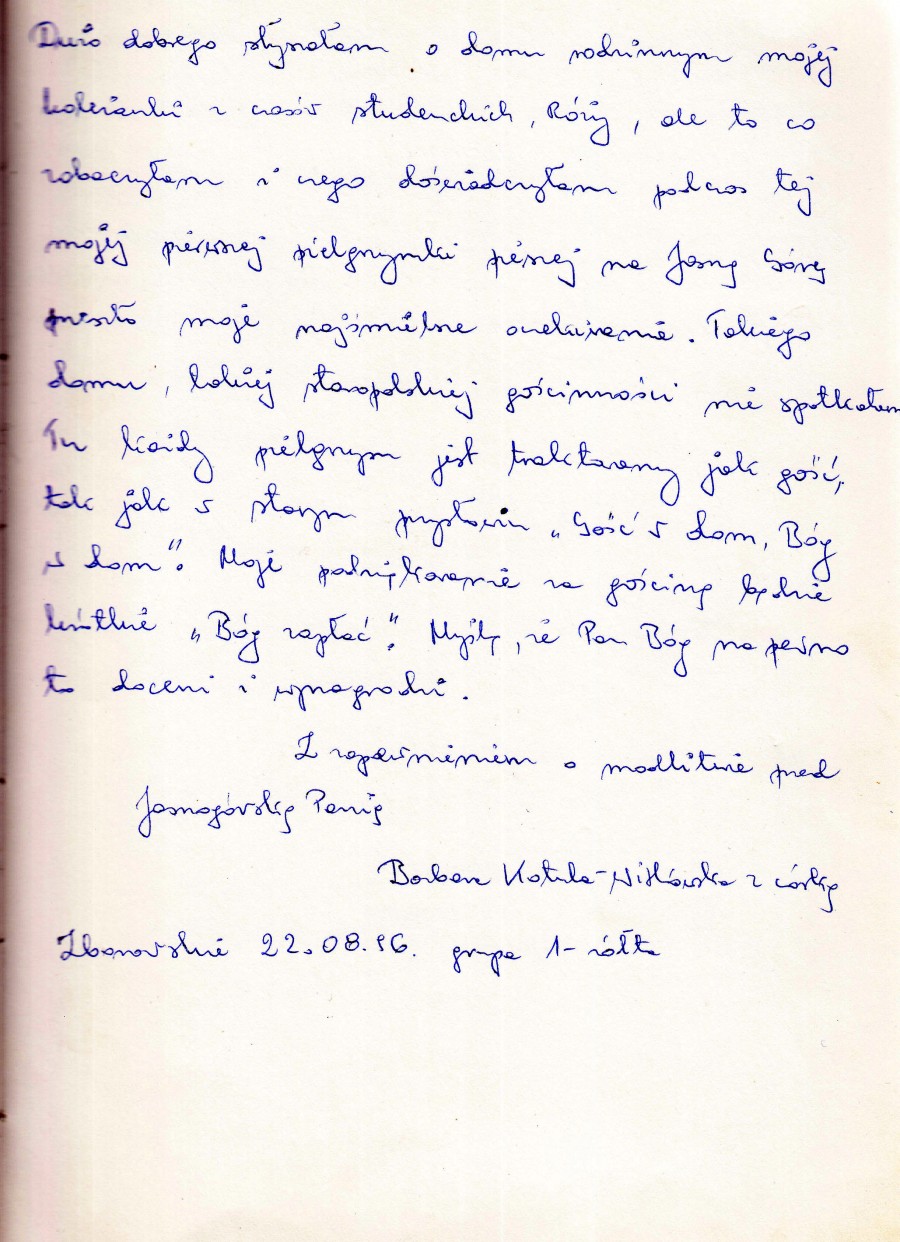 Dużo dobrego słyszałam o domu rodzinnym mojej
koleżanki z czasów studenckich, Róży, ale to co
zobaczyłam i czego doświadczyłam podczas tej
mojej pierwszej pielgrzymki pieszej na Jasną Górę
przeszło moje najśmielsze oczekiwanie. Takiego
domu, takiej staropolskiej gościnności nie spotkałam
Tu każdy pielgrzym jest traktowany jak gość,
tak jak w starym przysłowiu „Gość w dom, Bóg
w dom". Moje podziękowanie za gościnę będzie
krótkie „Bóg zapłać". Myślę, że Pan Bóg na pewno
to doceni i wynagrodzi.
Z zapewnieniem o modlitwie przed
Jasnogórską Panią
Barbara Kotula- z córką
22.08.96. grupa 1-żółta